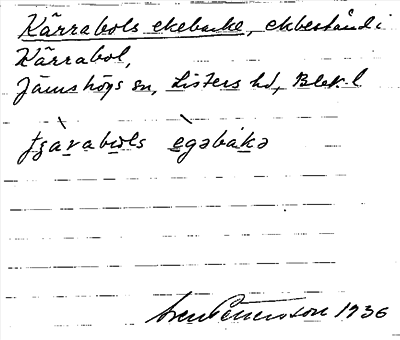 Kärrabols ekebacke, ekbestånd i
Kärrabol,
Jämshögs sn, Listers hd, Blek. l.
Pettersson 1936